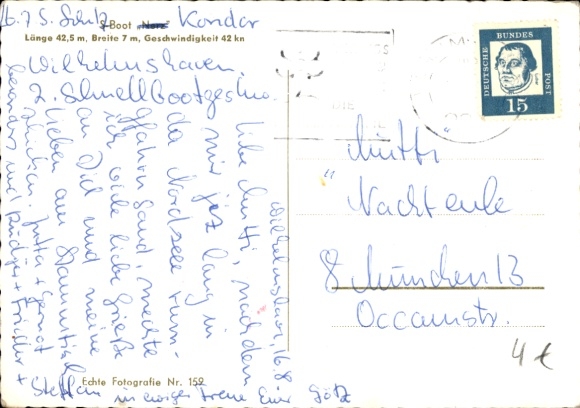 S-Boot Nerz Kondor
Länge 42,5 m, Breite 7 m, Geschwindigkeit 42 kn
Wilhelmshaven,
2. Schnellbootgeschw.
Wilhelmshaven, 16.8
Liebe Mutti, nachdem
wir jetzt lang in
der Nordsee rum-
gefahren sind, möchte
ich viele liebe Grüße
an Dich und meine
lieben am Stammtisch
schicken. Jutta + Gernot
+ Rüdiger + Frieder +
Steffen in ewiger Treue Euer Götz
DEUTSCHE BUNDES POST
15
"Mutti"
Nachteule
8 München 13
Occamstr.
4 €
Echte Fotografie Nr. 159